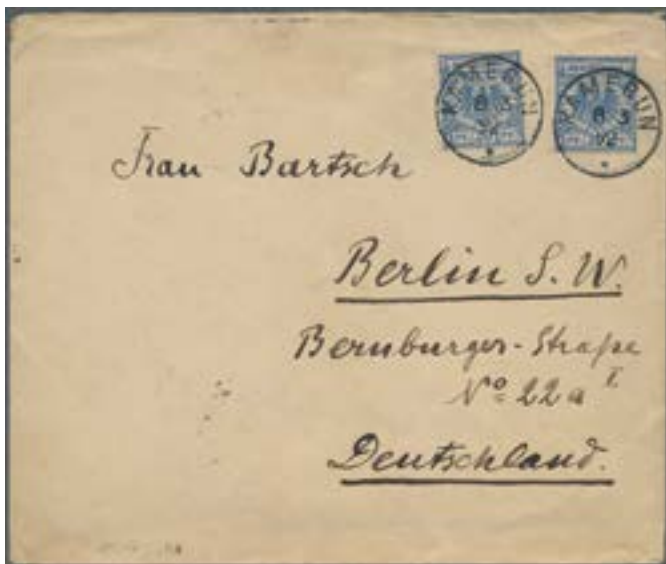 KAMERUN
8 3
92
*
KAMERUN
8 3
92
*
Frau Bartsch
Berlin S. W.
Bernburger-Straße
No 22a I.
Deutschland.